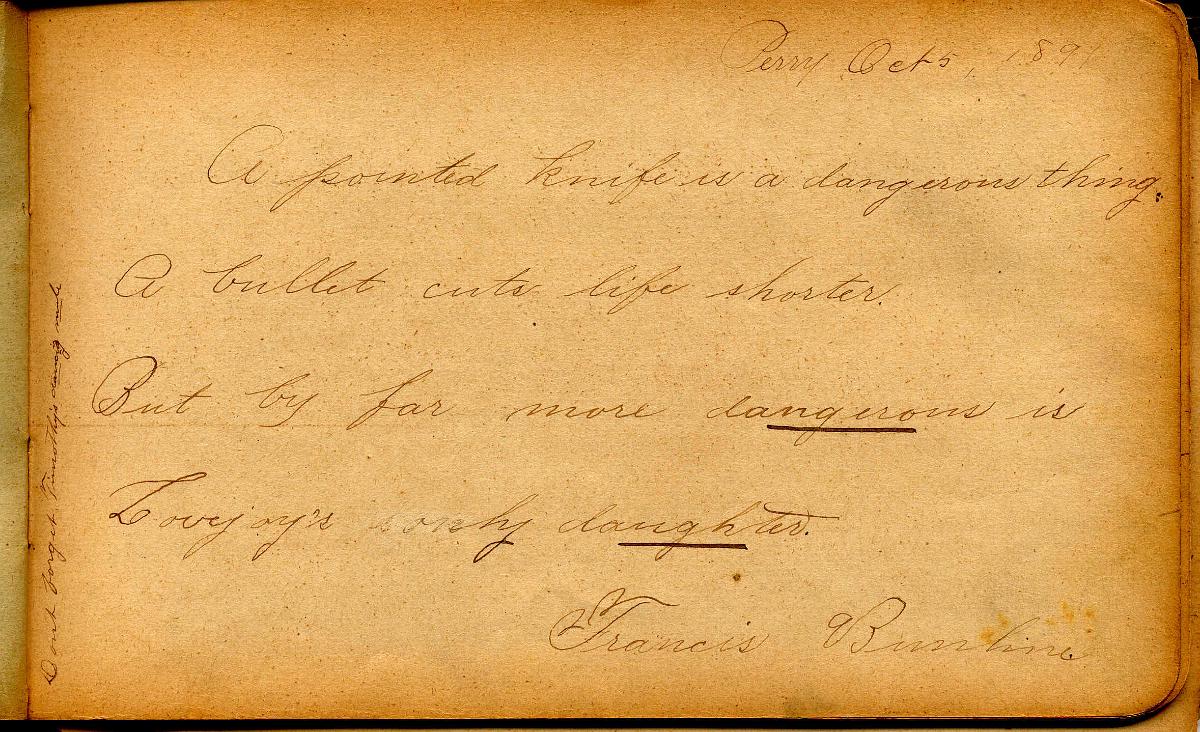 Perry Oct 5, 1891
A pointed knife is a dangerous thing.
A bullet cuts life shorter.
But by far more dangerous is
Lovejoy's only daughter.
Francis
Dont forget Timothy's mule